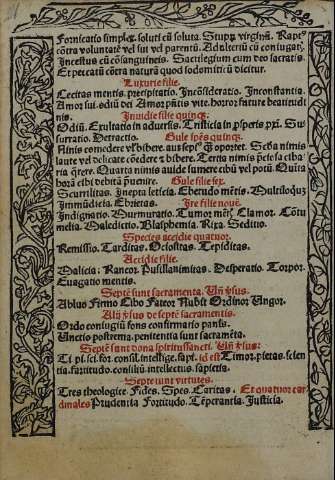 Fornicatio simplex soluti cū soluta. Stuprū virginū. Rapt⁹
cōtra voluntatē vel sui vel parentū. Adulteriū cū coniugata.
Incestus cū cōsanguineis. Sacrilegium cum deo sacratis.
Et peccatū cōtra naturā quod sodomiticū dicitur.
Luxurie filie.
Cecitas mentis. precipitatio. Incōsideratio. Inconstantia.
Amor sui. odiū dei Amor pn̄tis vite. horror future beatitudi
nis.
Inuidie filie quinq3.
Odiū. Exultatio in aduersis. Tristicia in psperis pxi. Su
surratio. Detractio.
Gule spēs quinq3.
Nimis comedere vl' bibere. aut sepi⁹ q̄3 oportet. Scd̄a nimis
laute vel delicate comedere & bibere. Tertia nimis pciosa ciba
ria q̄rere. Quarta nimis auide sumere cibū vel potū. Quīta
horā cibi debitā p̄uenire.
Gule filie sex.
Scurrilitas. Inepta leticia. Ebetudo mētis. Multiloquiū
Immūdicia. Ebrietas.
Ire filie nouē.
Indignatio. Murmuratio. Tumor mētis. Clamor. Cōtu
melia. Maledictio. Blasphemia. Rixa. Seditio.
Species accidie quatuor.
Remissio. Tarditas. Ociositas. Tepiditas.
Accidie filie.
Malicia. Rancor. Pusillanimitas. Desperatio. Torpor.
Euagatio mentis.
Septē sunt sacramenta. Vn̄ v̄sus:
Abluo Firmo Cibo Fateor Nubit Ordinor Vngor.
Alij v̄sus de septē sacramentis.
Ordo coniugiū fons confirmatio panis.
Vnctio postrema. penitentia sunt sacramēta.
Septē sunt dona spiritussancti. Vn̄ v̄sus:
Ti. pi. sci. for. consil. intellige. sapi. id est Timor. pietas. scien
tia. fortitudo. consiliū. intellectus. sapiētia.
Septē sunt virtutes.
Tres theologice. Fides. Spes. Caritas. Et quatuor car
dinales Prudentia Fortitudo. Tēperantia. Justicia.